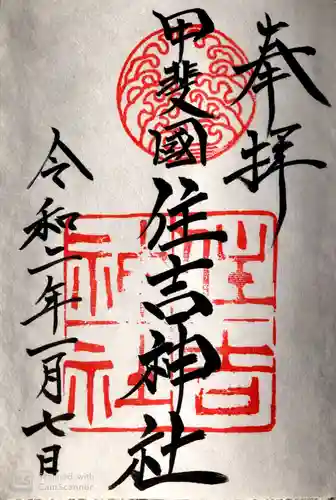 奉拝
甲斐國
住吉神社
令和二年一月七日
住吉神社
Scanned with
CamScanner